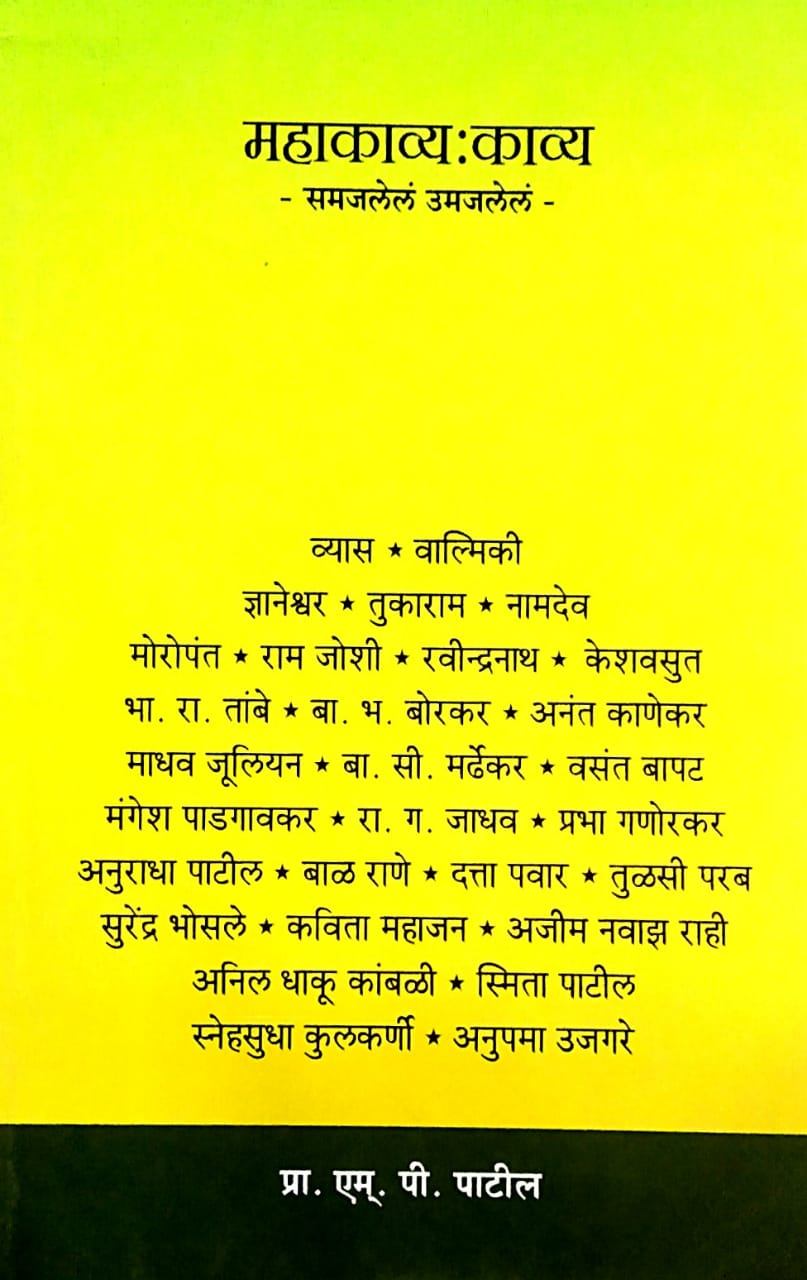 महाकाव्य:काव्य
- समजलेलं उमजलेलं -
व्यास ★ वाल्मिकी
ज्ञानेश्वर ★ तुकाराम ★ नामदेव
मोरोपंत ★ राम जोशी ★ रवीन्द्रनाथ ★ केशवसुत
भा. रा. तांबे ★ बा. भ. बोरकर ★ अनंत काणेकर
माधव जूलियन ★ बा. सी. मर्ढेकर ★ वसंत बापट
मंगेश पाडगावकर ★ रा. ग. जाधव ★ प्रभा गणोरकर
अनुराधा पाटील ★ बाळ राणे ★ दत्ता पवार ★ तुळसी परब
सुरेंद्र भोसले ★ कविता महाजन ★ अजीम नवाझ राही
अनिल धाकू कांबळी ★ स्मिता पाटील
स्नेहसुधा कुलकर्णी ★ अनुपमा उजगरे
प्रा. एम्. पी. पाटील